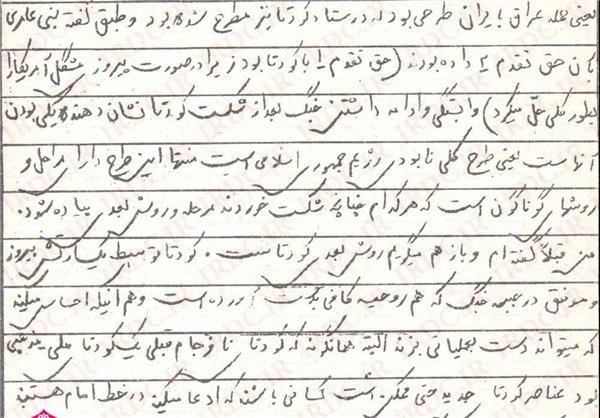 یعنی حمله عراق بایران طرحی بود که در ستاد کودتا نیز مطرح شده بود و طبق گفته بنی عامری
بآن حق تقدم را داده بودند (حق تقدم را با کودتا بود زیرا در صورت پیروزی مشکل آمریکا را
بطور کلی حل میکرد) وابستگی و ادامه داشتن جنگ بعد از شکست کودتا نشان دهنده یکی بودن
آنهاست یعنی طرح کلی نابودی رژیم جمهوری اسلامی است منتها این طرح دارای مراحل و
روشهای گوناگون است که هر کدام چنانچه شکست خوردند مرحله و روش بعدی پیاده شود.
من قبلاً گفته ام و باز هم میگویم روش بعدی کودتا ست. کودتا توسط یک ارتش پیروز
و موفق در جبهه جنگ که هم روحیه کافی بدست آورده است و هم اینکه احساس میکند
که میتواند دست بعملیاتی بزند البته همانگونه که کودتا نافرجام قبلی یک کودتا ملی مذهبی
بود عناصر کودتا جدید حتی ممکن است کسانی باشند که ادعا میکنند در خط امام هستند